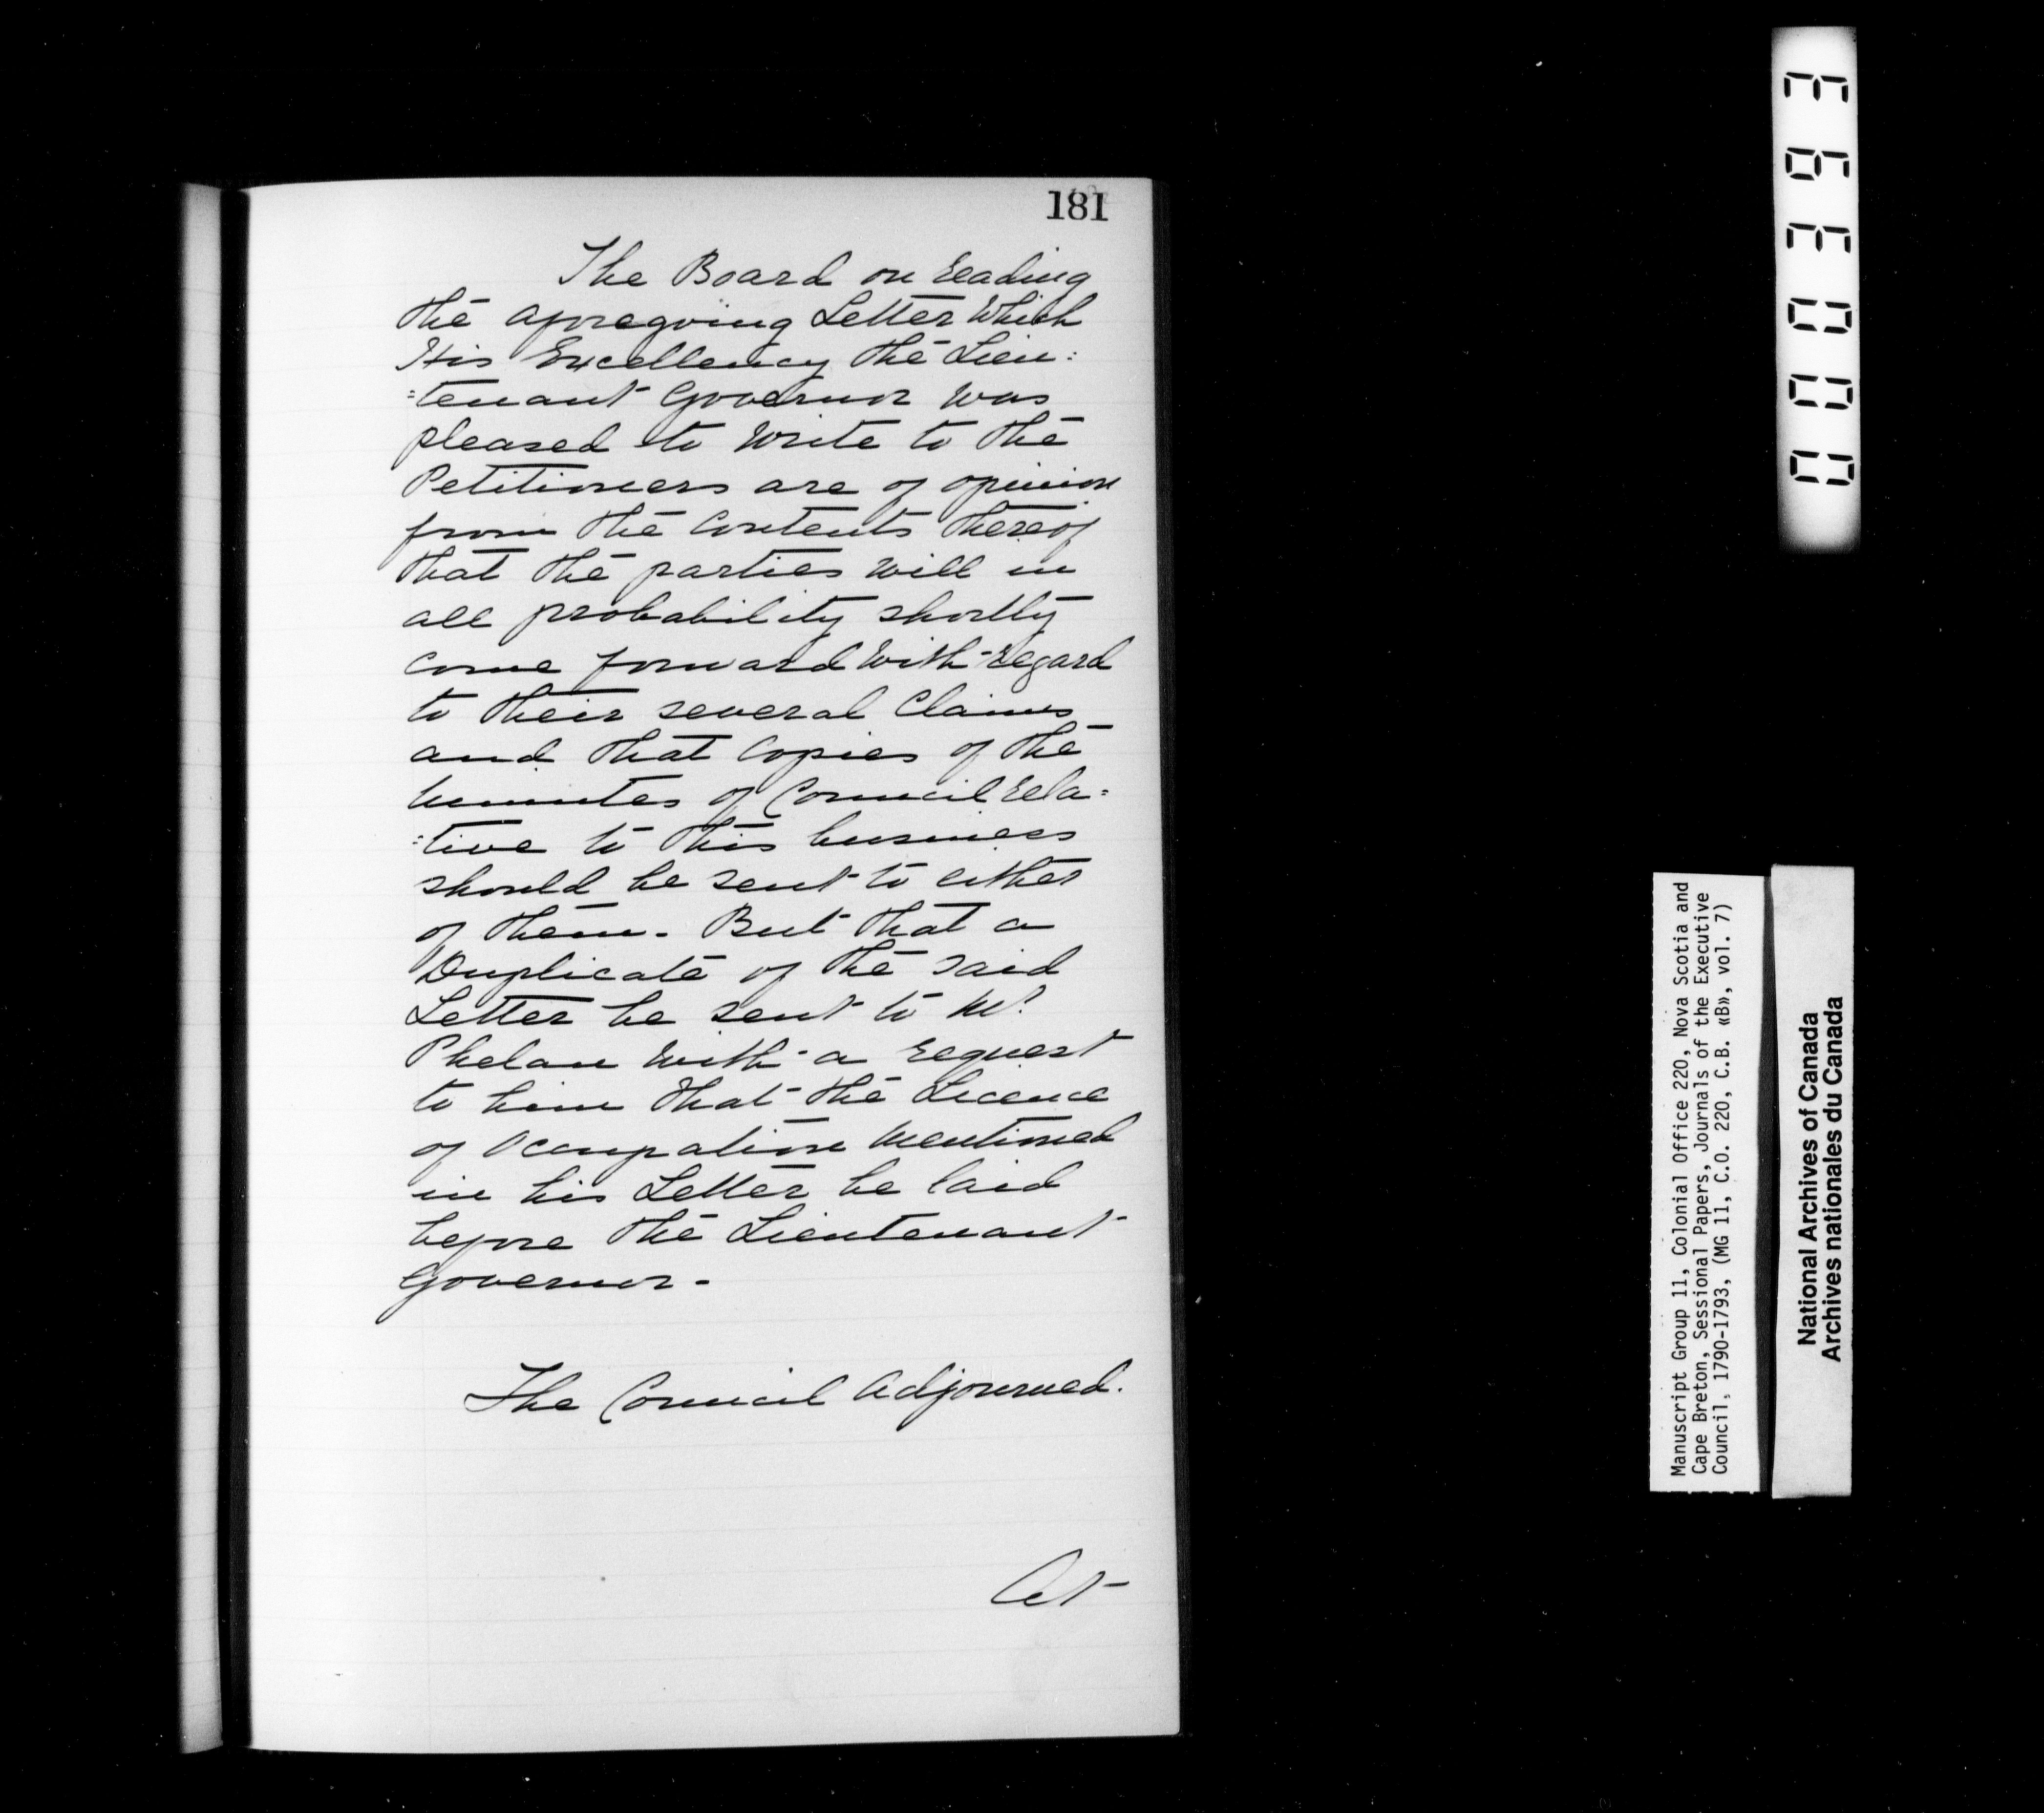 181
The Board on reading
the aforegoing Letter Which
His Excellency the Lieu=
=tenant Governor was
pleased to Write to the
Petitioners are of opinion
from the Contents thereof
that the parties will in
all probability shortly
come forward With regard
to their several Claims
and that Copies of the
Minutes of Council rela=
=tive to this business
should be sent to either
of them. But that a
Duplicate of the said
Letter be sent to Mr.
Phelan with a request
to him that the Licence
of Occupation Mentioned
in his Letter be laid
before the Lieutenant
Governor-
The Council Adjourned.
At
000393
Manuscript Group 11, Colonial Office 220, Nova Scotia and
Cape Breton, Sessional Papers, Journals of the Executive
Council, 1790-1793, (MG 11, C.O. 220, C.B. «B», vol. 7)
National Archives of Canada
Archives nationales du Canada